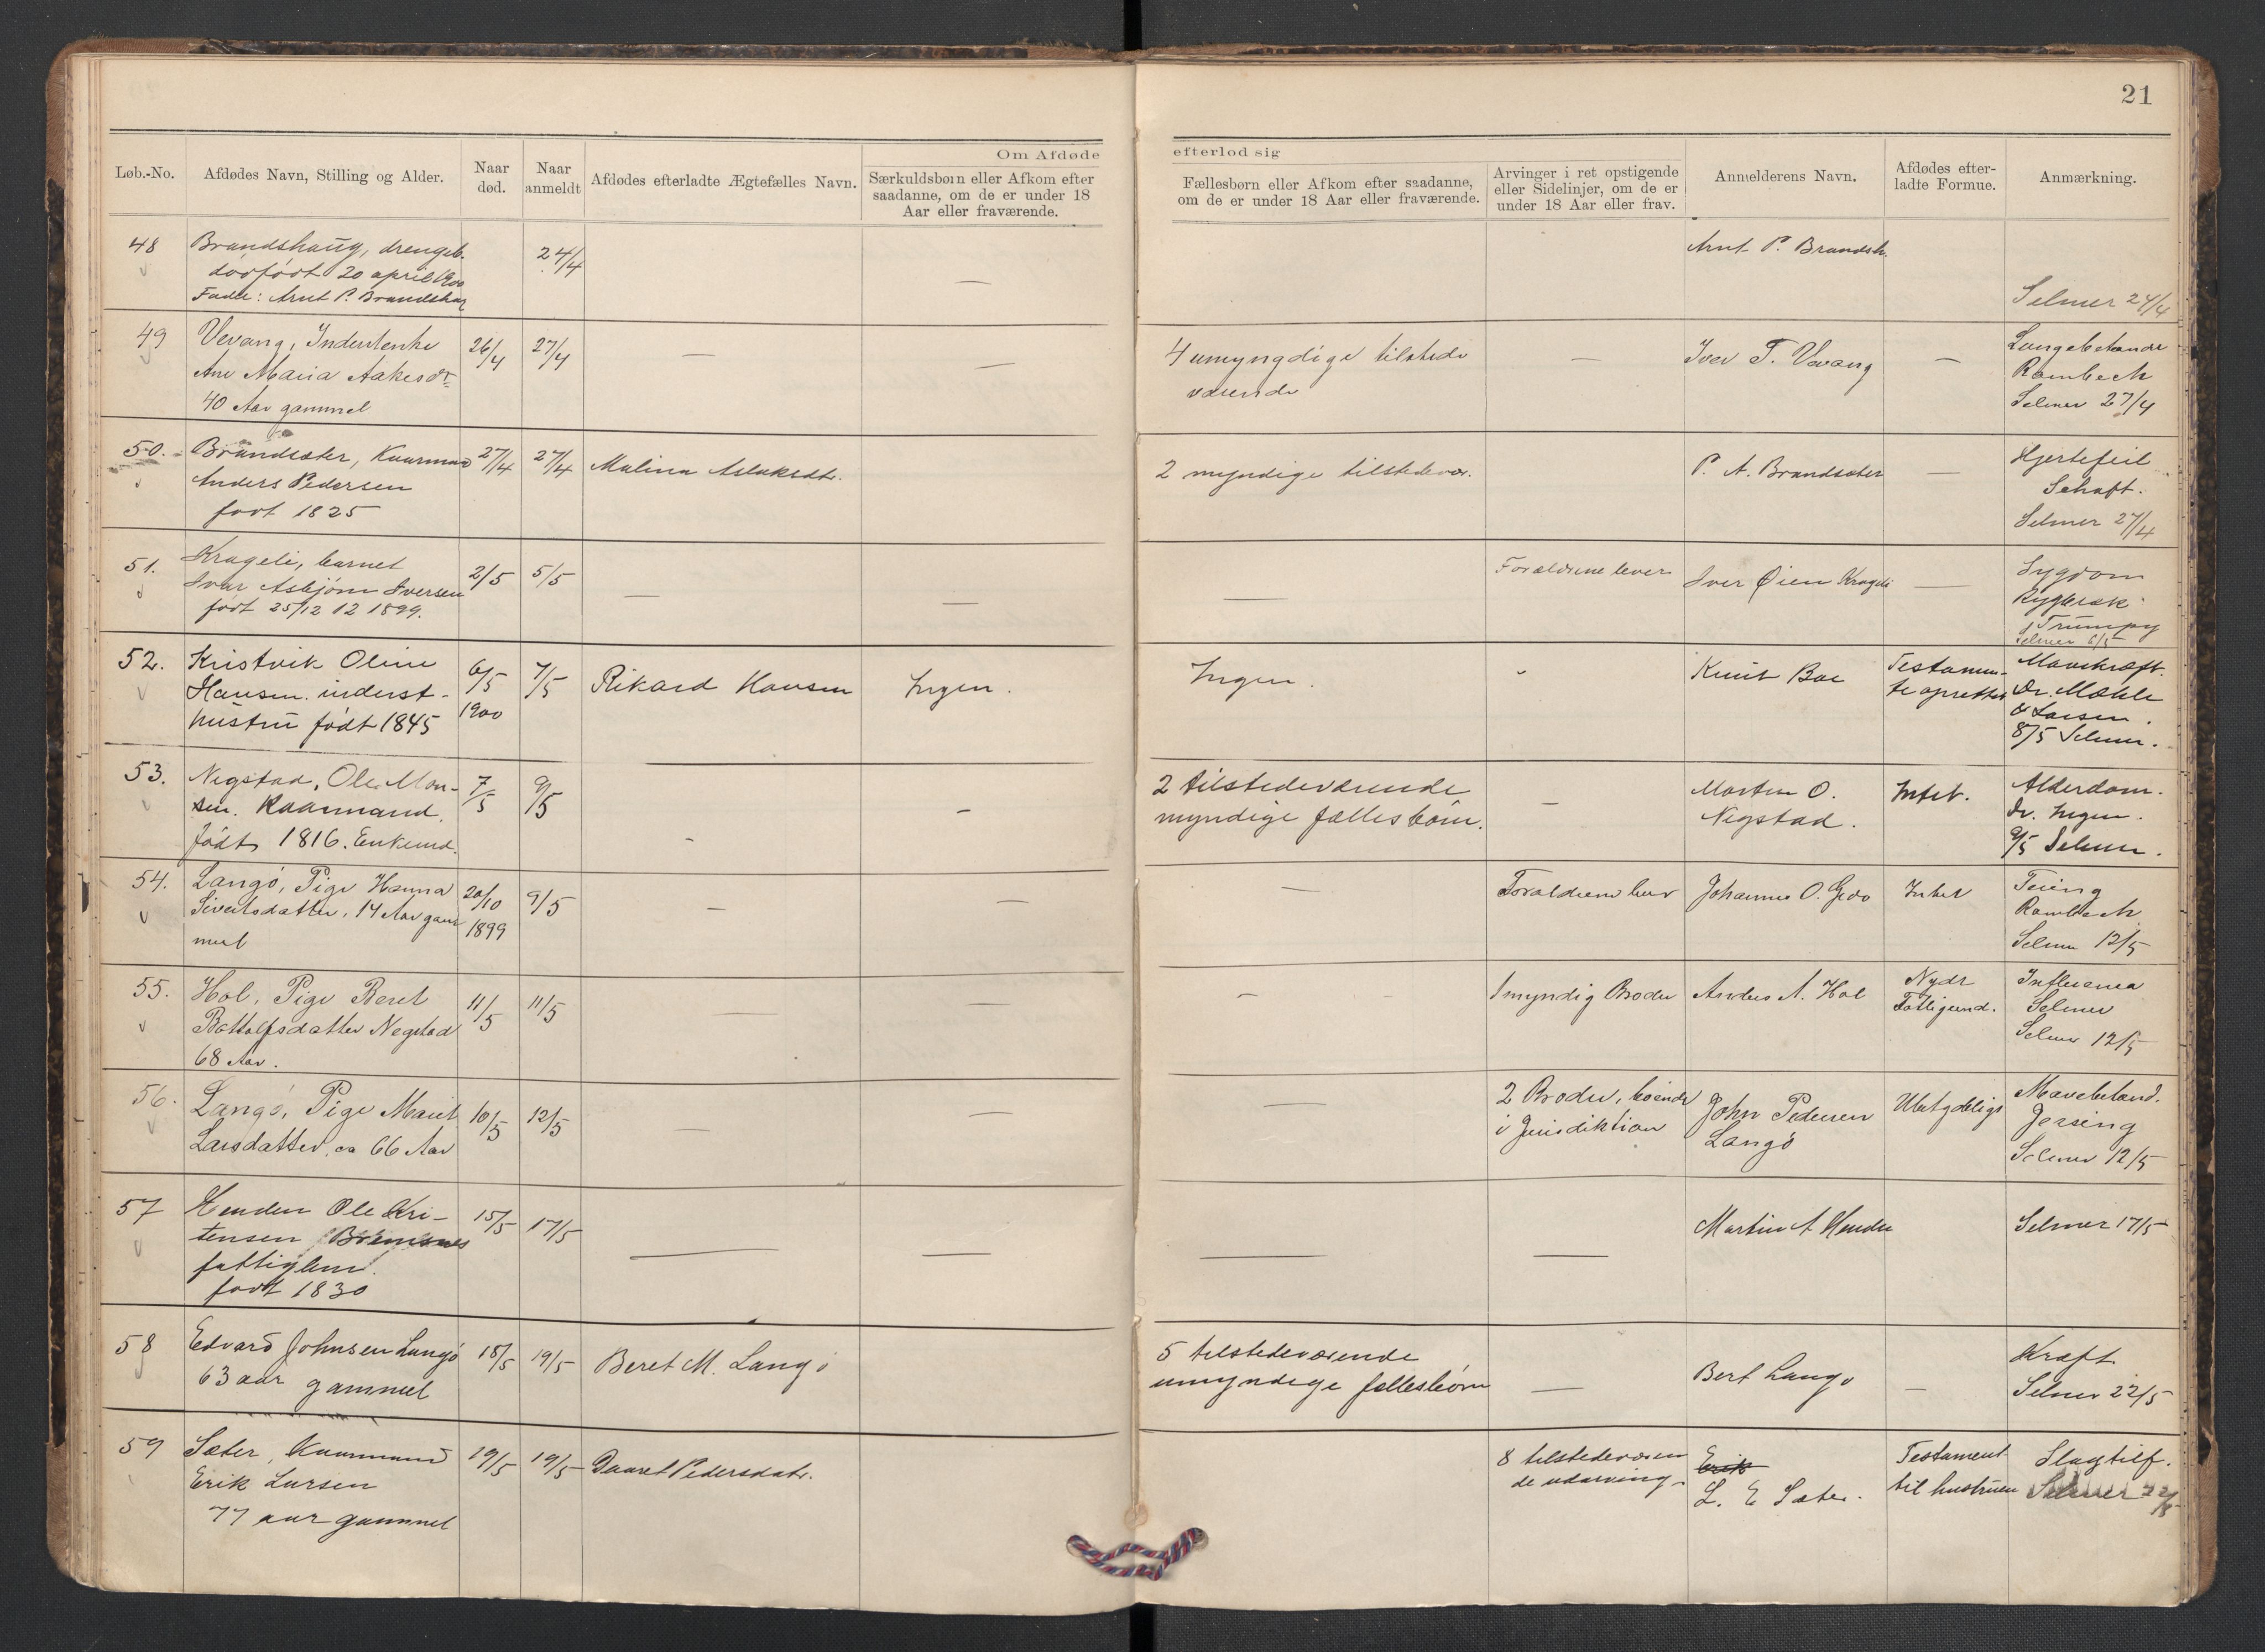 21
Om Afdøde
efterlod sig
Løb.-No.
Afdødes Navn, Stilling og Alder.
Naar død.
Naar anmeldt
Afdødes efterladte Ægtefælles Navn.
Særkuldsbørn eller Afkom efter
saadanne, om de er under 18
Aar eller fraværende.
Fællesbørn eller Afkom efter saadanne,
om de er under 18 Aar eller fraværende.
Arvinger i ret opstigende
eller Sidelinjer, om de er
under 18 Aar eller frav.
Anmelderens Navn.
Afdødes efter-
ladte Formue.
Anmærkning.
48
Brandshaug, drengeb.
dødfødt 20 april 1900
Fader: Arnt P. Brandshaug
24/4
—
Arnt P. Brandsh.
Selmer 24/4
49
Vevang, Inderstenke
Ane Maria Aakesdt.
40 Aar gammel
26/4
27/4
—
—
4 umyngdige tilstede
værende
—
Iver T. Vevang
—
Lungebetændr
Rambech
Selmer 27/4
50.
Brandsæter, Kaarmand
Anders Pedersen
født 1825
27/4
27/4
Malina Aslaksdtr.
2 myndige tilstedevær.
P. A. Brandsæter
—
Hjertefeil
Schaft.
Selmer 27/4
51.
Krageli, barnet
Ivar Asbjørn Iversen
født 25/12 12 1899.
2/5
5/5
—
—
—
Forældrene lever
Iver Øien Krageli
—
Sygdom
Rygbræk
Trumpy
Selmer 6/5
52.
Kristvik Oline
Hansen. inderst-
hustru født 1845
6/5
1900
7/5
Rikard Hansen
Ingen.
Ingen.
Knut Boe
Testamen-
te oprettet
Mavekræft.
Dr. Mæhle
& Larsen.
8/5 Selmer.
53.
Negstad, Ole Mon-
sen. Kaarmand.
født 1816. Enkemd.
7/5
9/5
-
-
2 tilstedeværende
myndige fællesbørn.
—
Morten O.
Negstad.
Intet.
Alderdom.
Dr. Ingen.
9/5 Selmer.
54.
Langø, Pige Hanna
Sivertsdatter, 14 Aar gam
mel
20/10
1899
9/5
—
—
—
Forældrene lever
Johannes O.
Intet
Tering
Rambech
Selmer 12/5
55.
Hol, Pige Beret
Bottolfsdatter Negstad
68 Aar.
11/5
11/5
—
—
—
1 myndig Broder
Anders A. Hol
Nydt
Fattigund.
Influenca
Selmer
Selmer 12/5
56.
Langø, Pige Marit
Larsdatter, ca 66 Aar
10/5
12/5
—
—
—
2 Brødre, boende
i Jurisdiktion
John Pedersen
Langø
Ubetydeligt
Mavebetænd.
Jersing
Selmer 12/5
57
Henden Ole Kri-
tensen Bremsnes
fattiglem.
født 1830
15/5
17/5
—
—
—
—
Martin A Henden
Selmer 17/5
58
Edvard Johnsen Langø
63 aar gammel
18/5
19/5
Beret M. Langø
5 tilstedeværende
umyndige fællesbørn
—
Bert Langø
—
Kræft
Selmer 22/5
59
Sæter, Kaarmand
Erik Larsen
77 aar gammel
19/5
19/5
Daaret Pedersdatr.
8 tilstedeværen
de udarving.
Erik
L. E Sæter.
Testament
til hustruen
Slagtilf.
Selmer 22/5